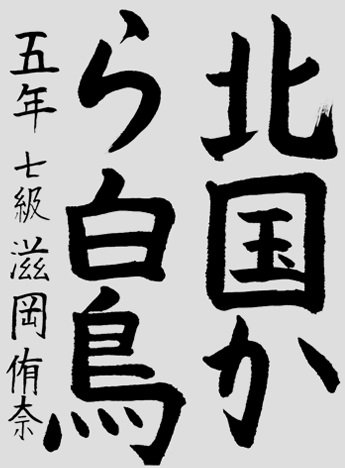 北国か
ら白鳥
五年 七級 滋岡侑奈